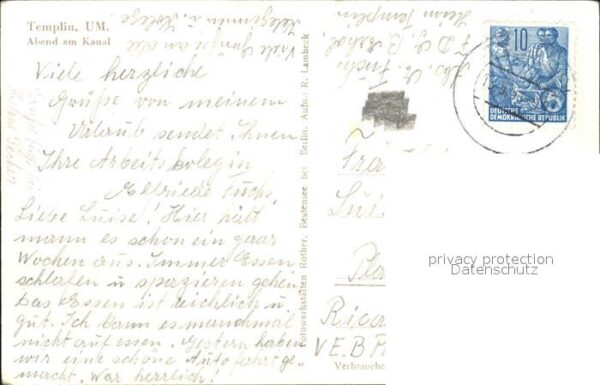 Templin, UM.
Abend am Kanal
Viele Grüße an alle
Kolleginnen u. Kollege
Viele herzliche
Grüße von meinem
Urlaub sendet Ihnen
Ihre Arbeitskolegin
Elfriede Fuchs.
Liebe Luise! Hier hält
mann es schon ein paar
Wochen aus. Immer Essen
schlafen u spazieren gehen
Das Essen ist reichlich u
gut. Ich kann es manchmal
nicht aufessen. Gestern haben
wir eine schöne Autofahrt ge-
macht. War herrlich!
Fotowerkstätten Rother, Bestensee bei Berlin. Aufn. R. Lambeck
Abs. E. Fuchs
F D G B
Heim Templin
10
DEUTSCHE
DEMOKRATISCHE REPUBLIK
Frau
Lui
Rica
V E. B F
Verbrauche
privacy protection
Datenschutz